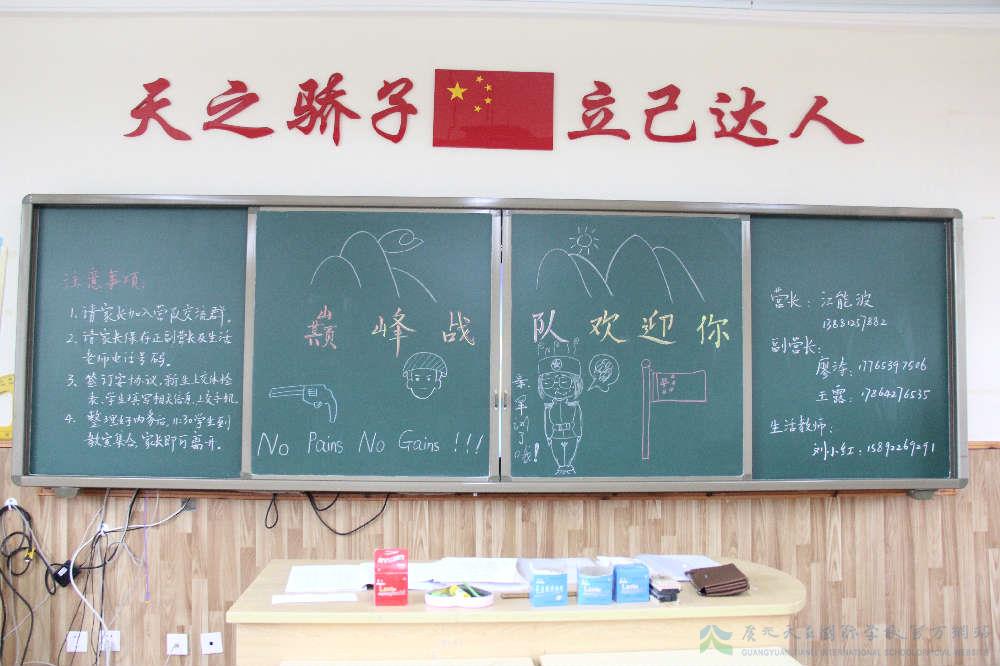 天之骄子 立己达人
注意事项:
1. 请家长加入营队交流群。
2. 请家长保存正副营长及生活
老师电话号码。
3. 签订客协议,新生上交体检
表、学生填写相关信息,上交手机
4. 整理好内务后,11:30学生到
教室集合,家长即可离开。
巅峰战
No Pains No Gains !!!
队欢迎你
亲,军训了哦!
营长: 江能波
13881257882
副营长:
廖涛: 17765397506
王露: 17864276535
生活教师:
刘小红: 15892269291
广元天立国际学校官方网站
GUANGYUAN TIANLI INTERNATIONAL SCHOOL OFFICIAL WEBSITE